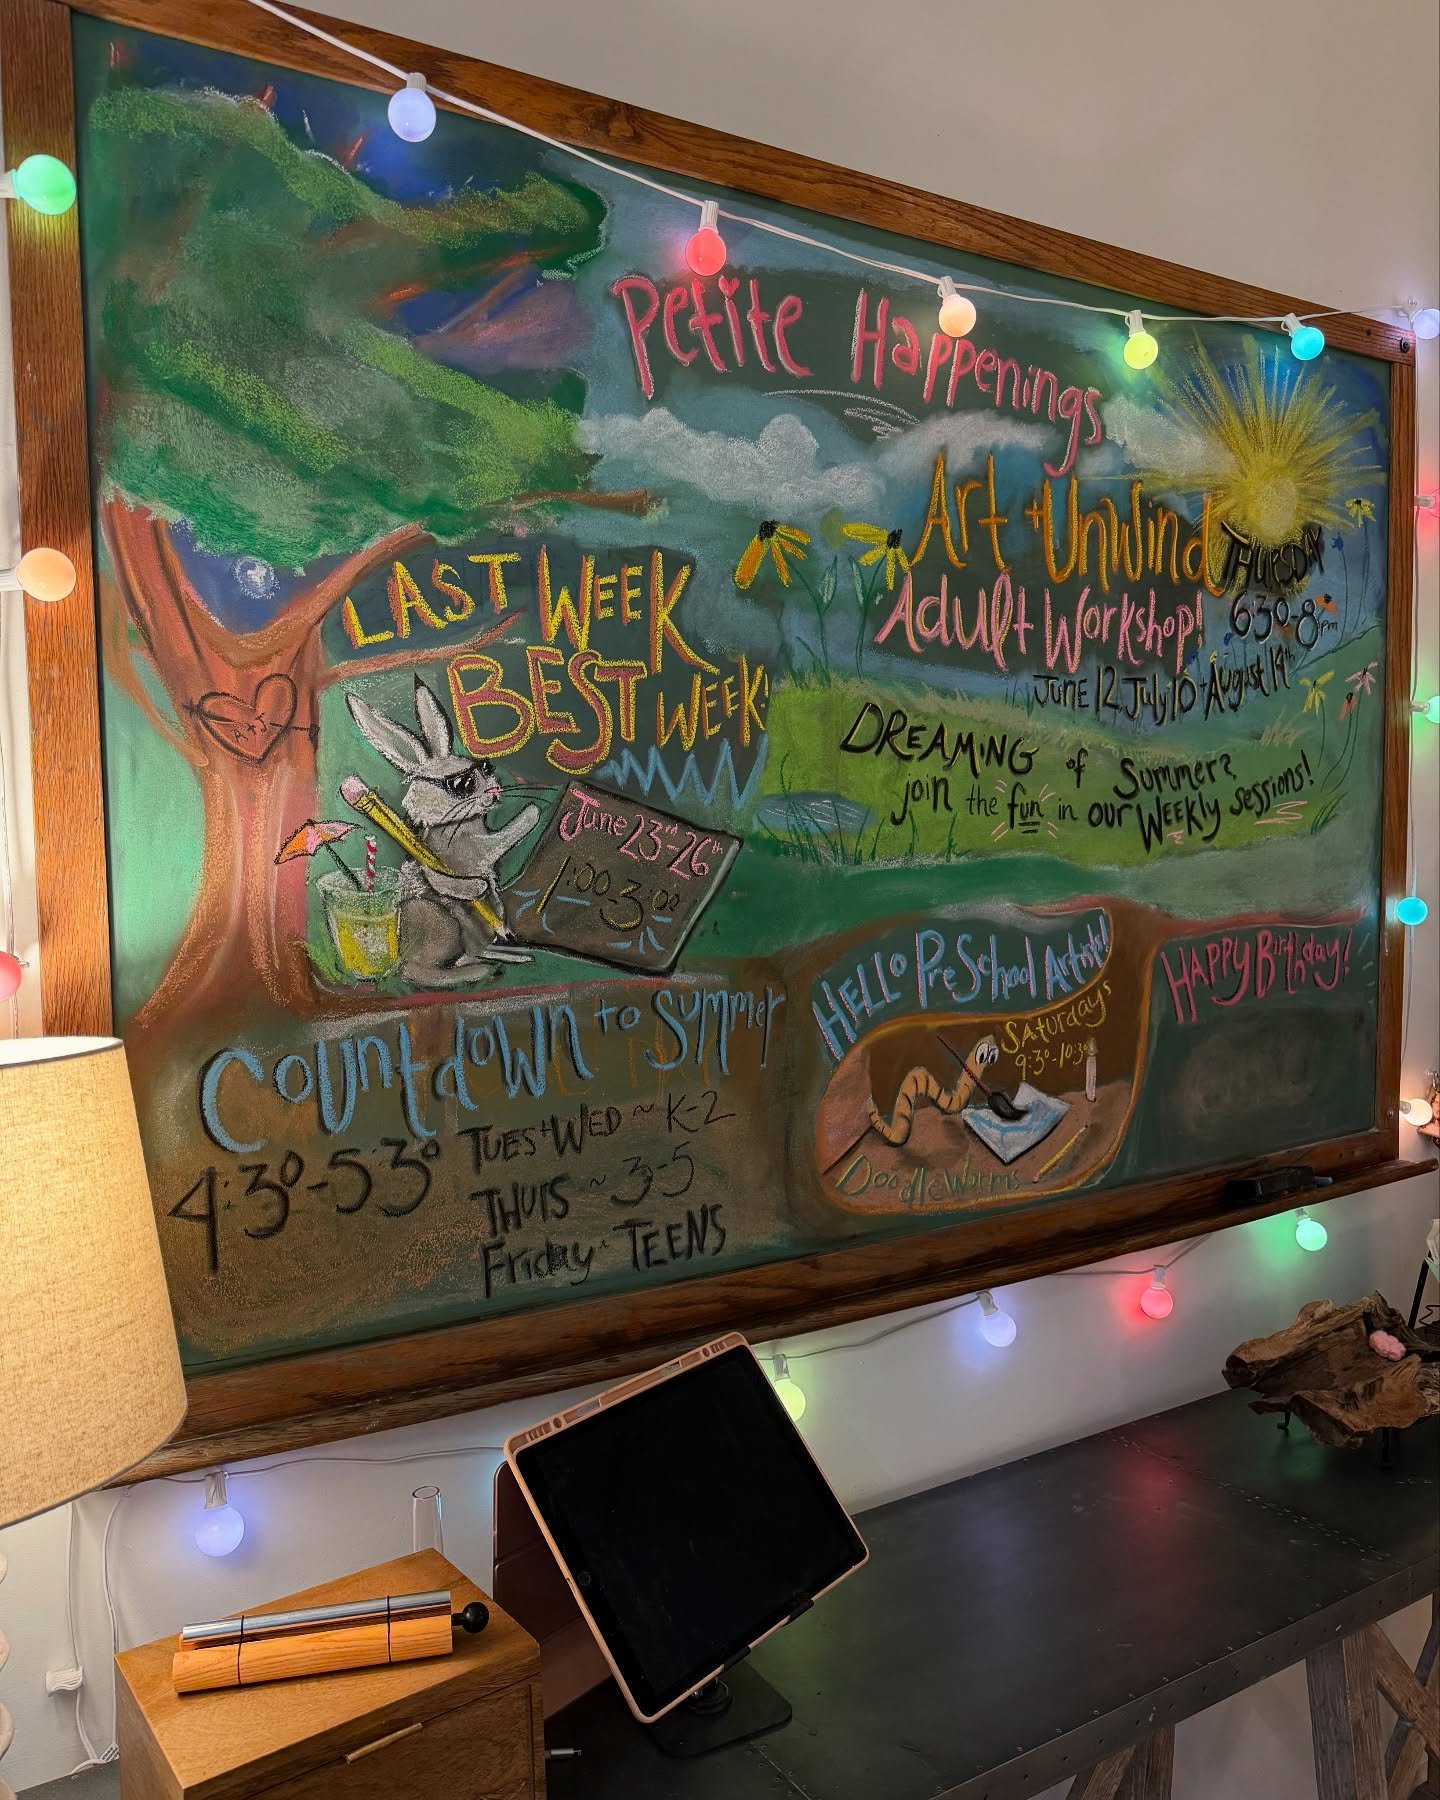 Petite Happenings
Art + Unwind
Adult Workshop!
THURSDAY
6:30-8pm
June 12, July 10 + August 14th
LAST WEEK
BEST WEEK!
A+J
June 23rd-26th
1:00-3:00
DREAMING of Summer?
join the fun in our WEEKLY sessions!
Countdown to Summer
4:30-5:30
TUES + WED ~ K-2
THURS ~ 3-5
Friday ~ TEENS
HELLO PreSchool Artists!
Saturdays
9:30-10:30
DoodleWorms
HAPPY Birthday!